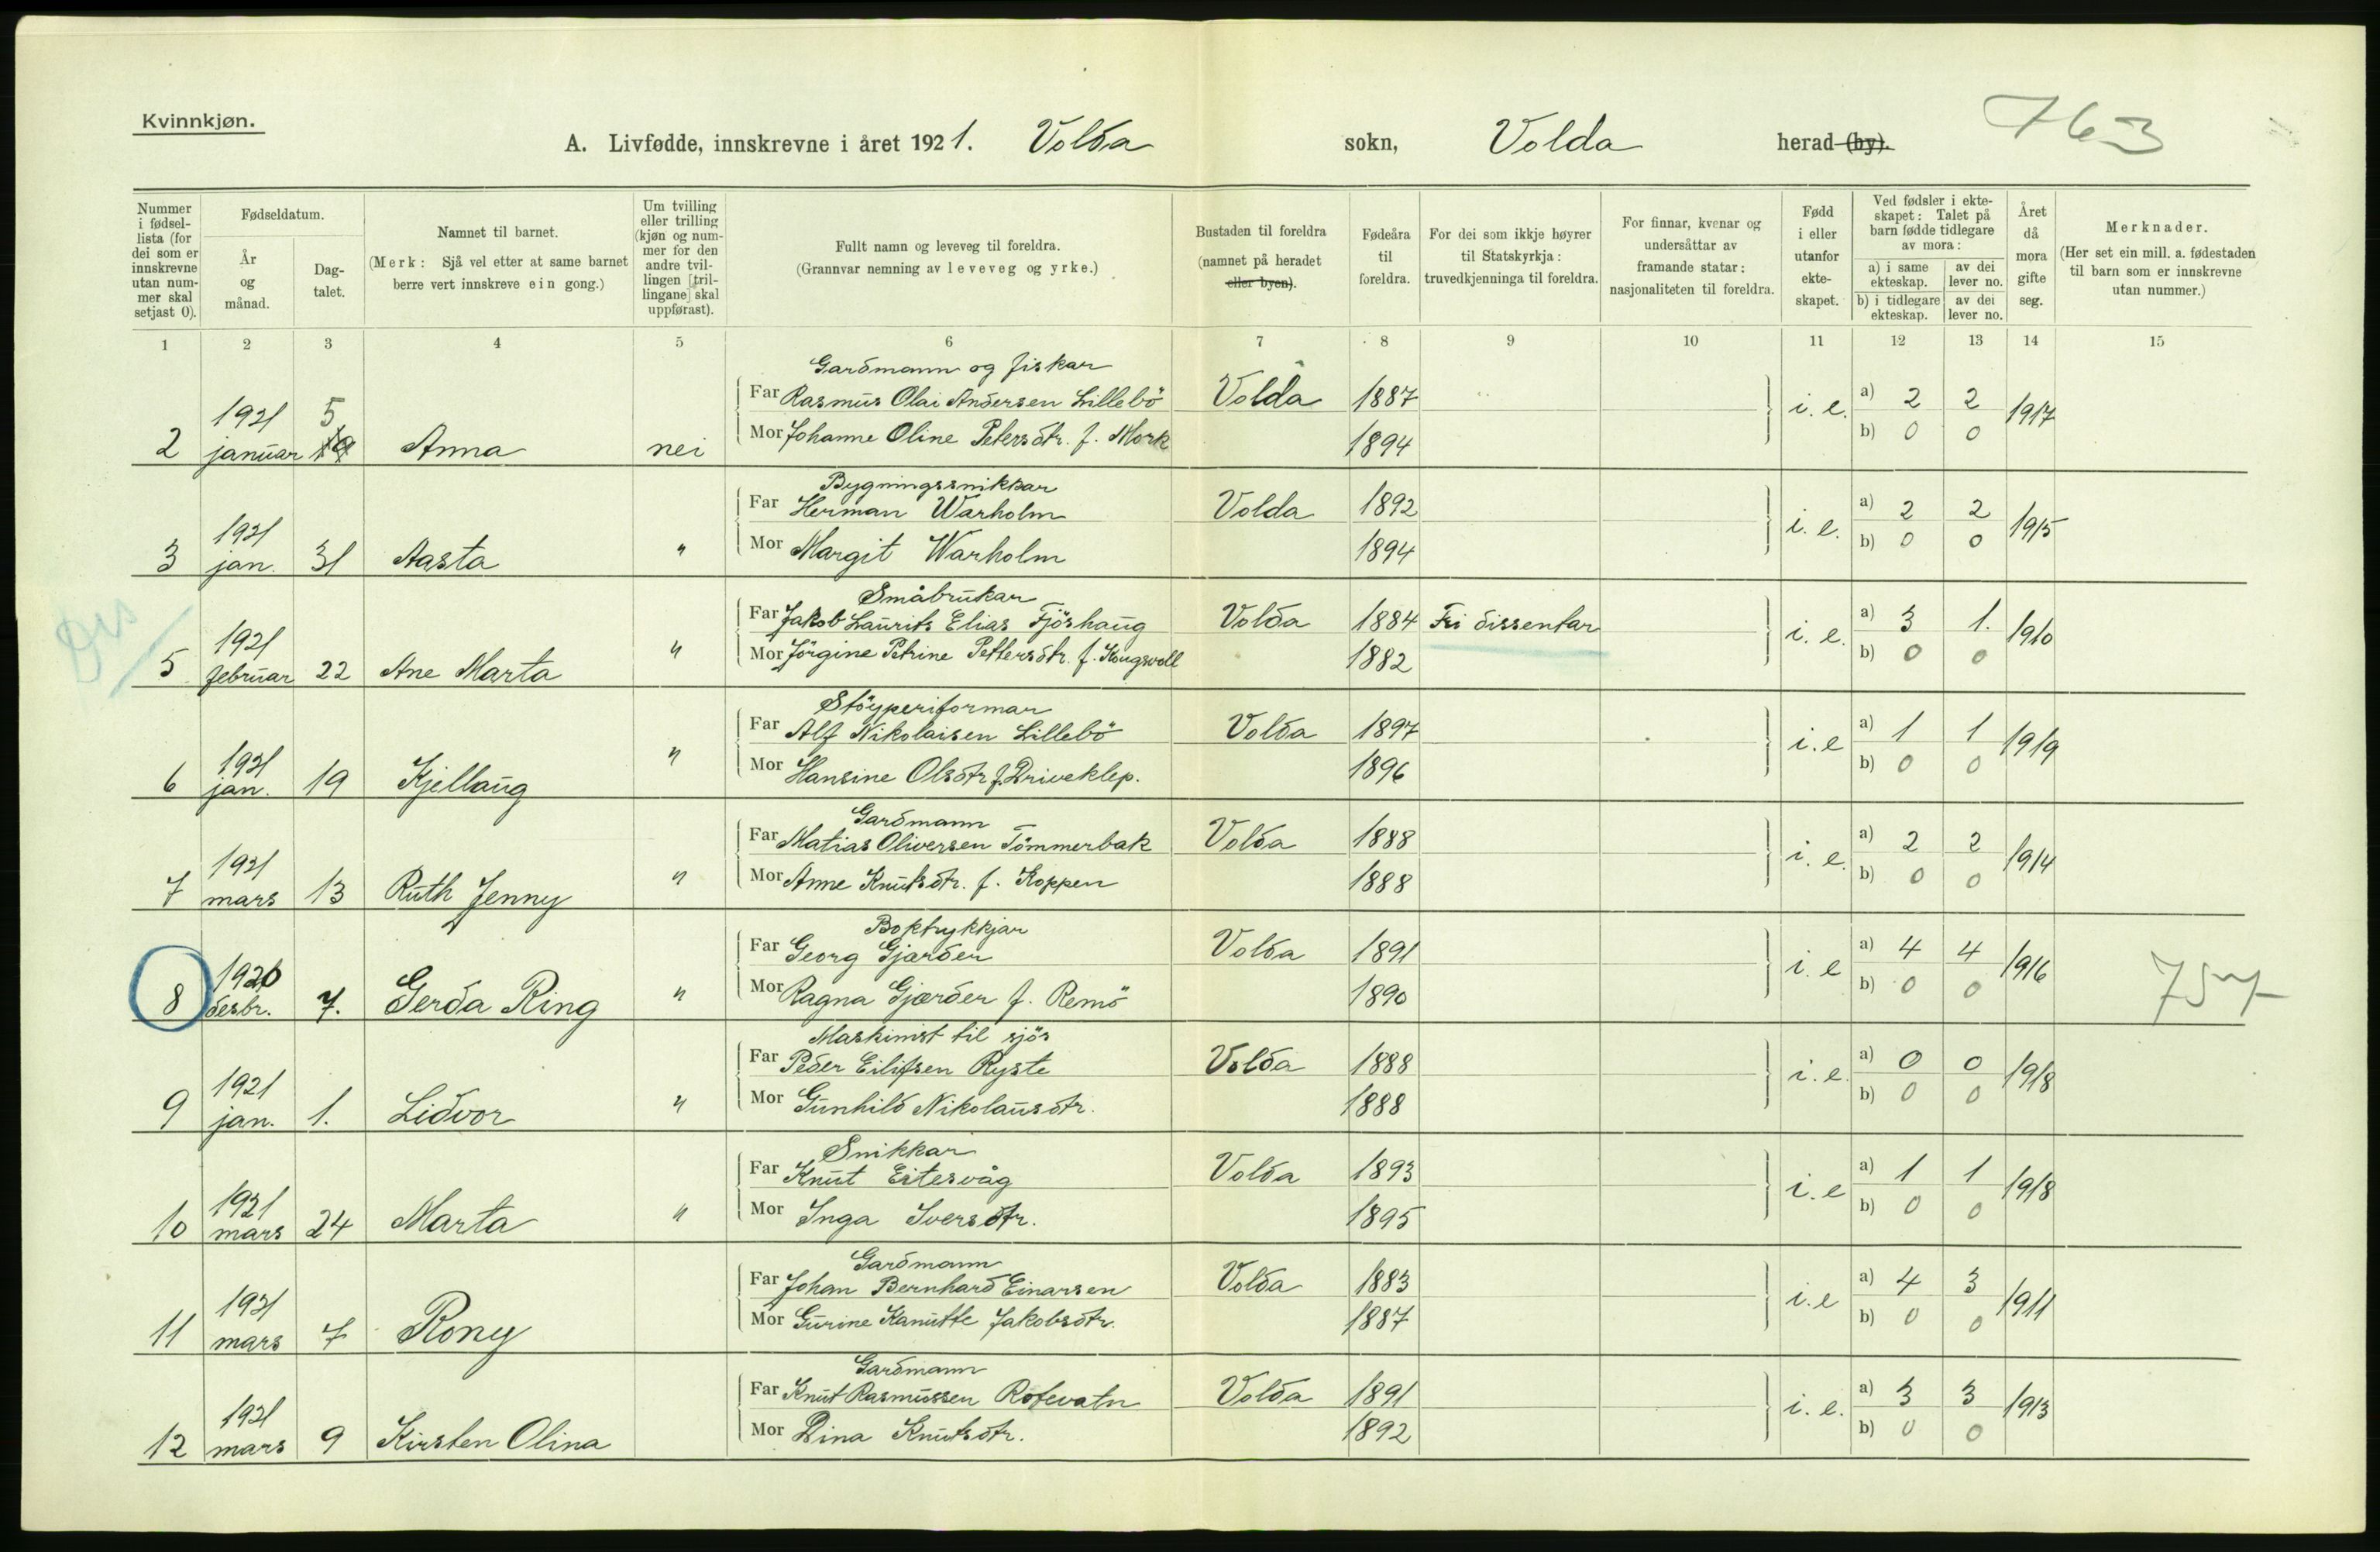 Kvinnkjøn.
763
A. Livfødde, innskrevne i året 1921. Volda sokn, Volda herad (by).
Nummer i fødsel-lista (for dei som er innskrevne utan num-mer skal setjast 0).
Fødseldatum.
År og månad.
Dag-talet.
Namnet til barnet.
(Merk: Sjå vel etter at same barnet berre vert innskreve ein gong.)
Um tvilling eller trilling (kjøn og num-mer for den andre tvil-lingen [tril-lingane] skal uppførast).
Fullt namn og leveveg til foreldra.
(Grannvar nemning av leveveg og yrke.)
Bustaden til foreldra (namnet på heradet eller byen).
Fødeåra til foreldra.
For dei som ikkje høyrer til Statskyrkja: truvedkjenninga til foreldra.
For finnar, kvenar og undersåttar av framande statar: nasjonaliteten til foreldra.
Fødd i eller utanfor ekte-skapet.
Ved fødsler i ekte-skapet: Talet på barn fødde tidlegare av mora:
a) i same ekteskap.
av dei lever no.
b) i tidlegare ekteskap.
av dei lever no.
Året då mora gifte seg.
Merknader.
(Her set ein mill. a. fødestaden til barn som er innskrevne utan nummer.)
1 2 3 4 5 6 7 8 9 10 11 12 13 14 15
Gardmann og fiskar
1921 5 Far Rasmus Olai Andersen Lillebö Volda 1887 i. e. a) 2 2 1917
2 januar Anna nei Mor Johanne Oline Petersdtr. f. Mork 1894 b) 0 0
Bygningssnikkar
1921 Far Herman Warholm Volda 1892 i. e. a) 2 2 1915
3 jan. 31 Aasta " Mor Margit Warholm 1894 b) 0 0
Småbrukar
Dis
1921 Far Jakob Laurits Elias Fjörhaug Volda 1884 Fri dissentar i. e. a) 3 1. 1910
5 februar 22 Ane Marta " Mor Jörgine Petrine Pettersdtr. f. Kongsvoll 1882 b) 0 0
Stöyperiformar
1921 Far Alf Nikolaisen Lillebö Volda 1897 i. e a) 1 1 1919
6 jan. 19 Kjellaug " Mor Hansine Olsdtr f. Driveklep. 1896 b) 0 0
Gardmann
1921 Far Matias Oliversen Tömmerbak Volda 1888 i. e. a) 2 2 1914
7 mars 13 Ruth Jenny " Mor Anne Knutsdtr. f. Koppen 1888 b) 0 0
Boktrykkjar
1920 Far Georg Gjærder Volda 1891 i. e a) 4 4 1916 757
8 desbr. 7. Gerda Ring " Mor Ragna Gjærder f. Remö 1890 b) 0 0
Maskinist til sjös
1921 Far Peder Eilifsen Ryste Volda 1888 i. e. a) 0 0 1918
9 jan. 1. Lidvor " Mor Gunhild Nikolausdtr. 1888 b) 0 0
Snikkar
1921 Far Knut Eitesvåg Volda 1893 i. e a) 1 1 1918
10 mars 24 Marta " Mor Inga Iversdtr. 1895 b) 0 0
Gardmann
1921 Far Johan Bernhard Einarsen Volda 1883 i. e a) 4 3 1911
11 mars 7 Rony Mor Gurine Kanutte Jakobsdtr. 1887 b) 0 0
Gardmann
1921 Far Knut Rasmussen Rotevatn Volda 1891 i. e. a) 3 3 1913
12 mars 9 Kirsten Olina Mor Dina Knutsdtr. 1892 b) 0 0